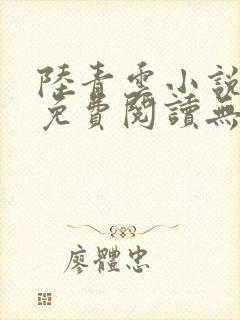 陸青雲小說
免費閱讀無
廖體忠